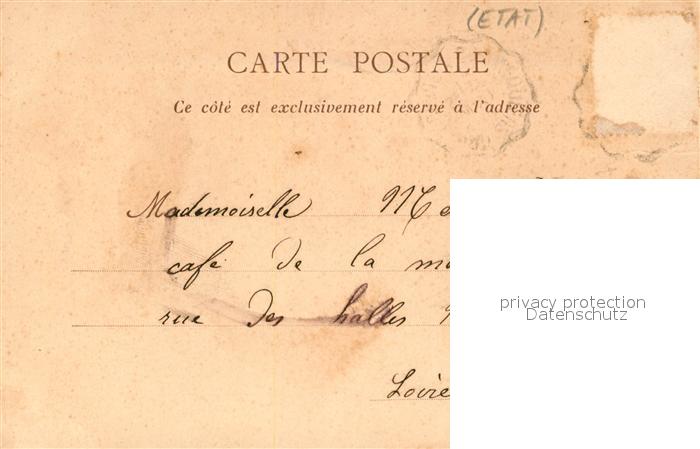 (ETAT)
CARTE POSTALE
Ce côté est exclusivement réservé à l'adresse
Mademoiselle
café de la
rue des halles
privacy protection
Datenschutz